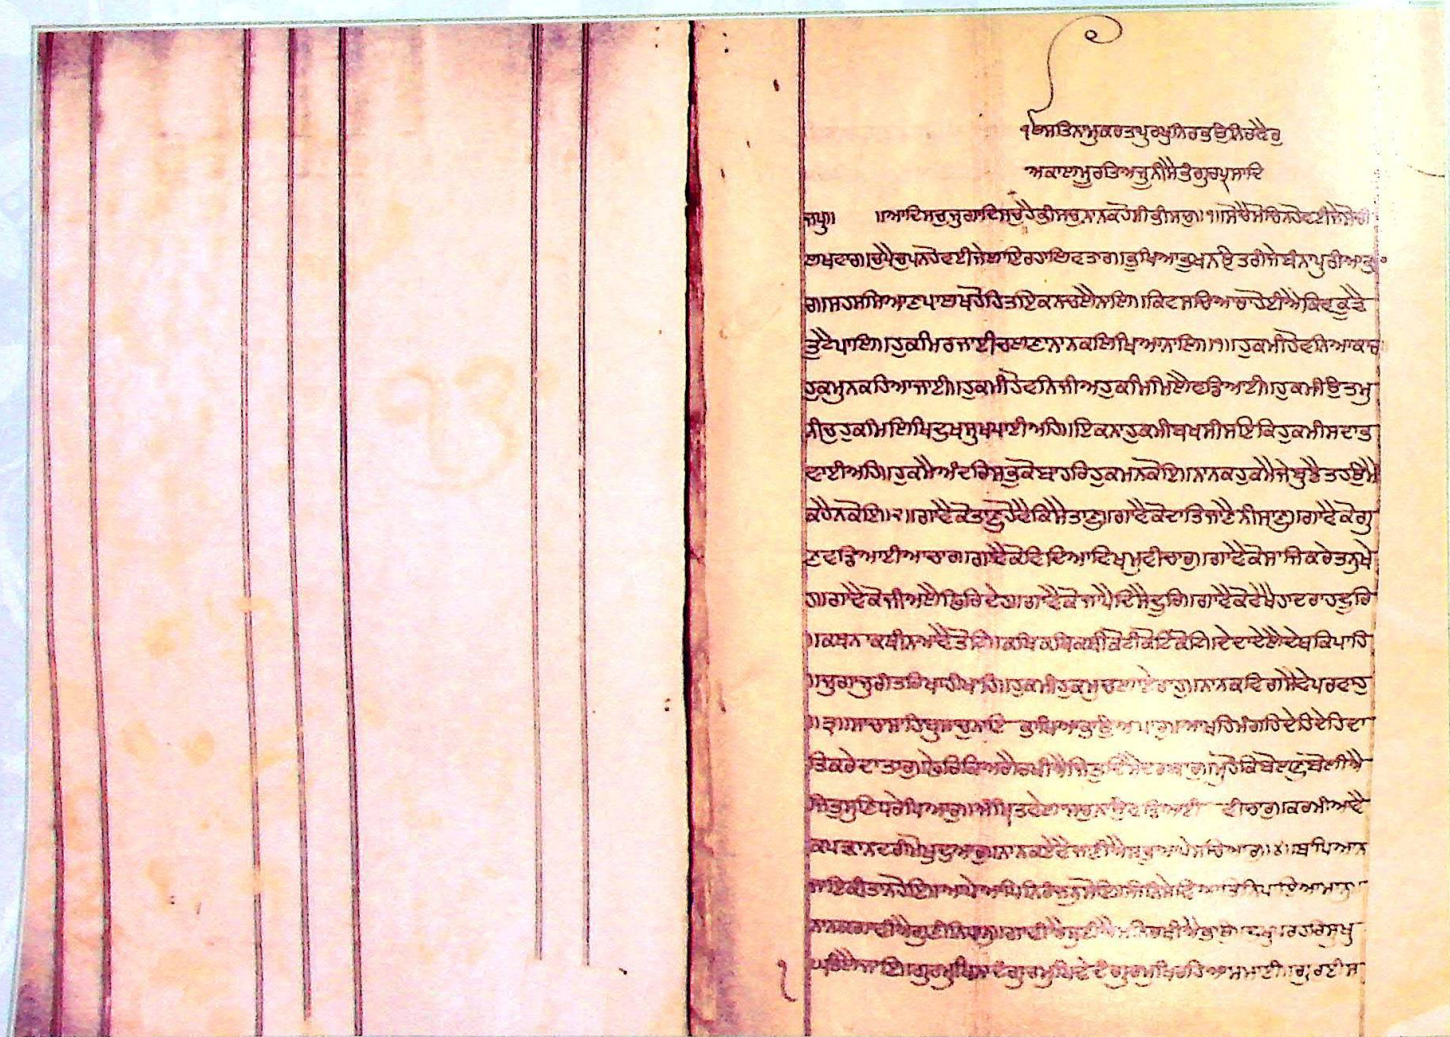 ੧ੴਸਤਿਨਾਮੁਕਰਤਾਪੁਰਖੁਨਿਰਭਉਨਿਰਵੈਰੁ
ਅਕਾਲਮੂਰਤਿਅਜੂਨੀਸੈਭੰਗੁਰਪ੍ਰਸਾਦਿ
ਜਪੁ॥ ॥ਆਦਿਸਚੁਜੁਗਾਦਿਸਚੁਹੈਭੀਸਚੁਨਾਨਕਹੋਸੀਭੀਸਚੁ॥੧॥ਸੋਚੈਸੋਚਿਨਹੋਵਈਜੇਸੋਚੀ
ਲਖਵਾਰ॥ਚੁਪੈਚੁਪਨਹੋਵਈਜੇਲਾਇਰਹਾਲਿਵਤਾਰ॥ਭੁਖਿਆਭੁਖਨਉਤਰੀਜੇਬੰਨਾਪੁਰੀਆਭਾ
ਰ॥ਸਹਸਸਿਆਣਪਾਲਖਹੋਹਿਤਇਕਨਚਲੈਨਾਲਿ॥ਕਿਵਸਚਿਆਰਾਹੋਈਐਕਿਵਕੂੜੈ
ਤੁਟੈਪਾਲਿ॥ਹੁਕਮਿਰਜਾਈਚਲਣਾਨਾਨਕਲਿਖਿਆਨਾਲਿ॥੧॥ਹੁਕਮੀਹੋਵਨਿਆਕਾਰ
ਹੁਕਮੁਨਕਹਿਆਜਾਈ॥ਹੁਕਮੀਹੋਵਨਿਜੀਅਹੁਕਮਿਮਿਲੈਵਡਿਆਈ॥ਹੁਕਮੀਉਤਮੁ
ਨੀਚੁਹੁਕਮਿਲਿਖਿਦੁਖਸੁਖਪਾਈਅਹਿ॥ਇਕਨਾਹੁਕਮੀਬਖਸੀਸਇਕਿਹੁਕਮੀਸਦਾਭ
ਵਾਈਅਹਿ॥ਹੁਕਮੈਅੰਦਰਿਸਭੁਕੋਬਾਹਰਿਹੁਕਮਨਕੋਇ॥ਨਾਨਕਹੁਕਮੈਜੇਬੁਝੈਤਹਉਮੈ
ਕਹੈਨਕੋਇ॥੨॥ਗਾਵੈਕੋਤਾਣੁਹੋਵੈਕਿਸੈਤਾਣੁ॥ਗਾਵੈਕੋਦਾਤਿਜਾਣੈਨੀਸਾਣੁ॥ਗਾਵੈਕੋਗੁ
ਣਵਡਿਆਈਆਚਾਰ॥ਗਾਵੈਕੋਵਿਦਿਆਵਿਖਮੁਵੀਚਾਰੁ॥ਗਾਵੈਕੋਸਾਜਿਕਰੇਤਨੁਖੇ
ਹ॥ਗਾਵੈਕੋਜੀਅਲੈਫਿਰਿਦੇਹ॥ਗਾਵੈਕੋਜਾਪੈਦਿਸੈਦੂਰਿ॥ਗਾਵੈਕੋਵੇਖੈਹਾਦਰਾਹਦੂਰਿ
॥ਕਥਨਾਕਥੀਨਆਵੈਤੋਟਿ॥ਕਥਿਕਥਿਕਥੀਕੋਟੀਕੋਟਿਕੋਟਿ॥ਦੇਦਾਦੇਲੈਦੇਥਕਿਪਾਹਿ
॥ਜੁਗਾਜੁਗੰਤਰਿਖਾਹੀਖਾਹਿ॥ਹੁਕਮੀਹੁਕਮੁਚਲਾਏਰਾਹੁ॥ਨਾਨਕਵਿਗਸੈਵੇਪਰਵਾਹੁ
॥੩॥ਸਾਚਾਸਾਹਿਬੁਸਾਚੁਨਾਇ ਭਾਖਿਆਭਾਉਅਪਾਰੁ॥ਆਖਹਿਮੰਗਹਿਦੇਹਿਦੇਹਿਦਾ
ਤਿਕਰੇਦਾਤਾਰੁ॥ਫੇਰਿਕਿਅਗੈਰਖੀਐਜਿਤੁਦਿਸੈਦਰਬਾਰੁ॥ਮੁਹੌਕਿਬੋਲਣੁਬੋਲੀਐ
ਜਿਤੁਸੁਣਿਧਰੇਪਿਆਰੁ॥ਅੰਮ੍ਰਿਤਵੇਲਾਸਚੁਨਾਉਵਡਿਆਈ ਵੀਚਾਰੁ॥ਕਰਮੀਆਵੈ
ਕਪੜਾਨਦਰੀਮੋਖੁਦੁਆਰੁ॥ਨਾਨਕਏਵੈਜਾਣੀਐਸਭੁਆਪੇਸਚਿਆਰੁ॥੪॥ਥਾਪਿਆਨ
ਜਾਇਕੀਤਾਨਹੋਇ॥ਆਪੇਆਪਿਨਿਰੰਜਨੁਸੋਇ॥ਜਿਨਿਸੇਵਿਆਤਿਨਿਪਾਇਆਮਾਨੁ॥
ਨਾਨਕਗਾਵੀਐਗੁਣੀਨਿਧਾਨੁ॥ਗਾਵੀਐਸੁਣੀਐਮਨਿਰਖੀਐਭਾਉ॥ਦੁਖੁਪਰਹਰਿਸੁਖੁ
੧ ਘਰਿਲੈਜਾਇ॥ਗੁਰਮੁਖਿਨਾਦੰਗੁਰਮੁਖਿਵੇਦੰਗੁਰਮੁਖਿਰਹਿਆਸਮਾਈ॥ਗੁਰਈਸ